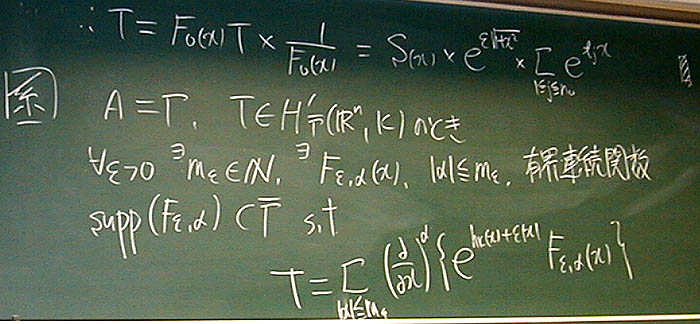 ∴ T = F₀(x) T × 1/F₀(x) = S(x) × e^{ε√(1+x²)} × Σ_{1≤j≤n₀} e^{ξ_j x}
系 A = Γ, T ∈ H'_Γ̄(ℝⁿ, K) のとき
∀ε>0 ∃m_ε∈ℕ, ∃F_{ε,α}(x), |α|≦m_ε, 有界連続関数
supp(F_{ε,α}) ⊂ Γ̄ s,t
T = Σ_{|α|≦m_ε} (∂/∂x)^α { e^{h_K(x)+ε|x|} F_{ε,α}(x) }